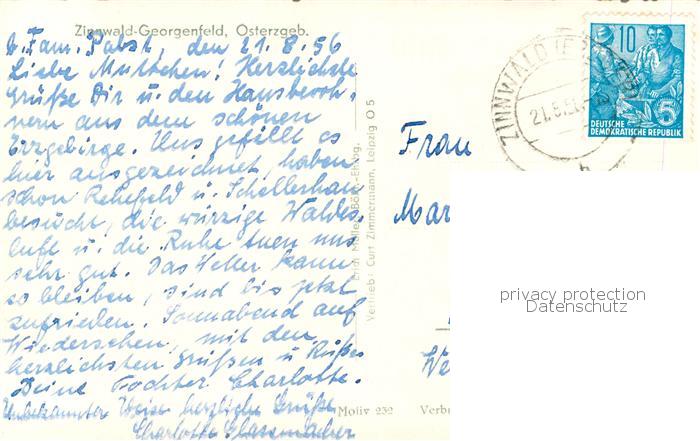 Zinnwald-Georgenfeld, Osterzgeb.
b. Fam. Pabst, den 21.8.56
Liebe Muttchen! Herzlichste
Grüße Dir u. den Hausbewoh-
nern aus dem schönen
Erzgebirge. Uns gefällt es
hier ausgezeichnet, haben
schon Rehefeld u. Schellerhau
besucht, die würzige Waldes-
luft u. die Ruhe tuen uns
sehr gut. Das Wetter kann
so bleiben, sind bis jetzt
zufrieden. Sonnabend auf
Wiedersehen, mit den
herzlichsten Grüßen u. Küßen
Deine Tochter Charlotte.
Unbekannter Weise herzliche Grüße
Charlotte
Vertrieb: Curt Zimmermann, Leipzig O 5
Motiv 232
Verbr
ZINNWALD (ERZ
21.8.56
10
5
DEUTSCHE
DEMOKRATISCHE REPUBLIK
Frau
Mar
We
privacy protection
Datenschutz